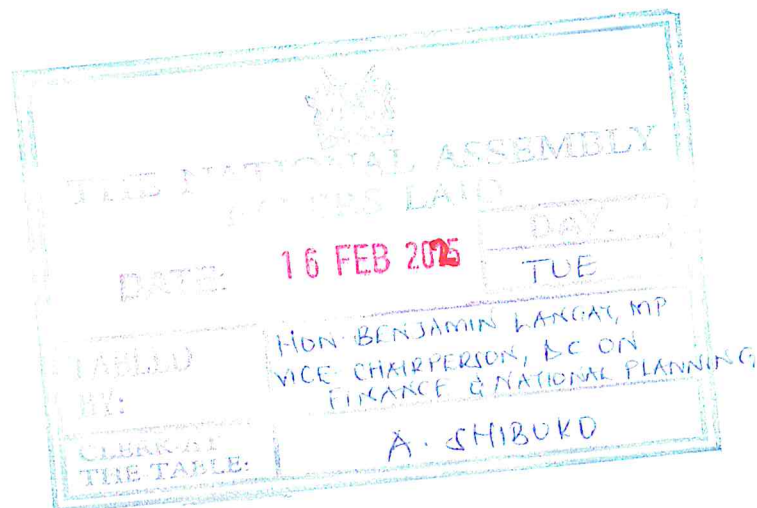 THE NATIONAL ASSEMBLY
PAPERS LAID
DATE: 16 FEB
DAY.
TUE
TABLED
BY:
HON. BENJAMIN LANGAT, MP
VICE CHAIRPERSON, DC ON
FINANCE & NATIONAL PLANNING
CLERK-AT
THE-TABLE:
A. SHIBUKO